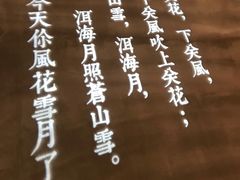 花，下关風，
下关風吹上关花；
山雪，洱海月，
洱海月照蒼山雪。
今天伱風花雪月了